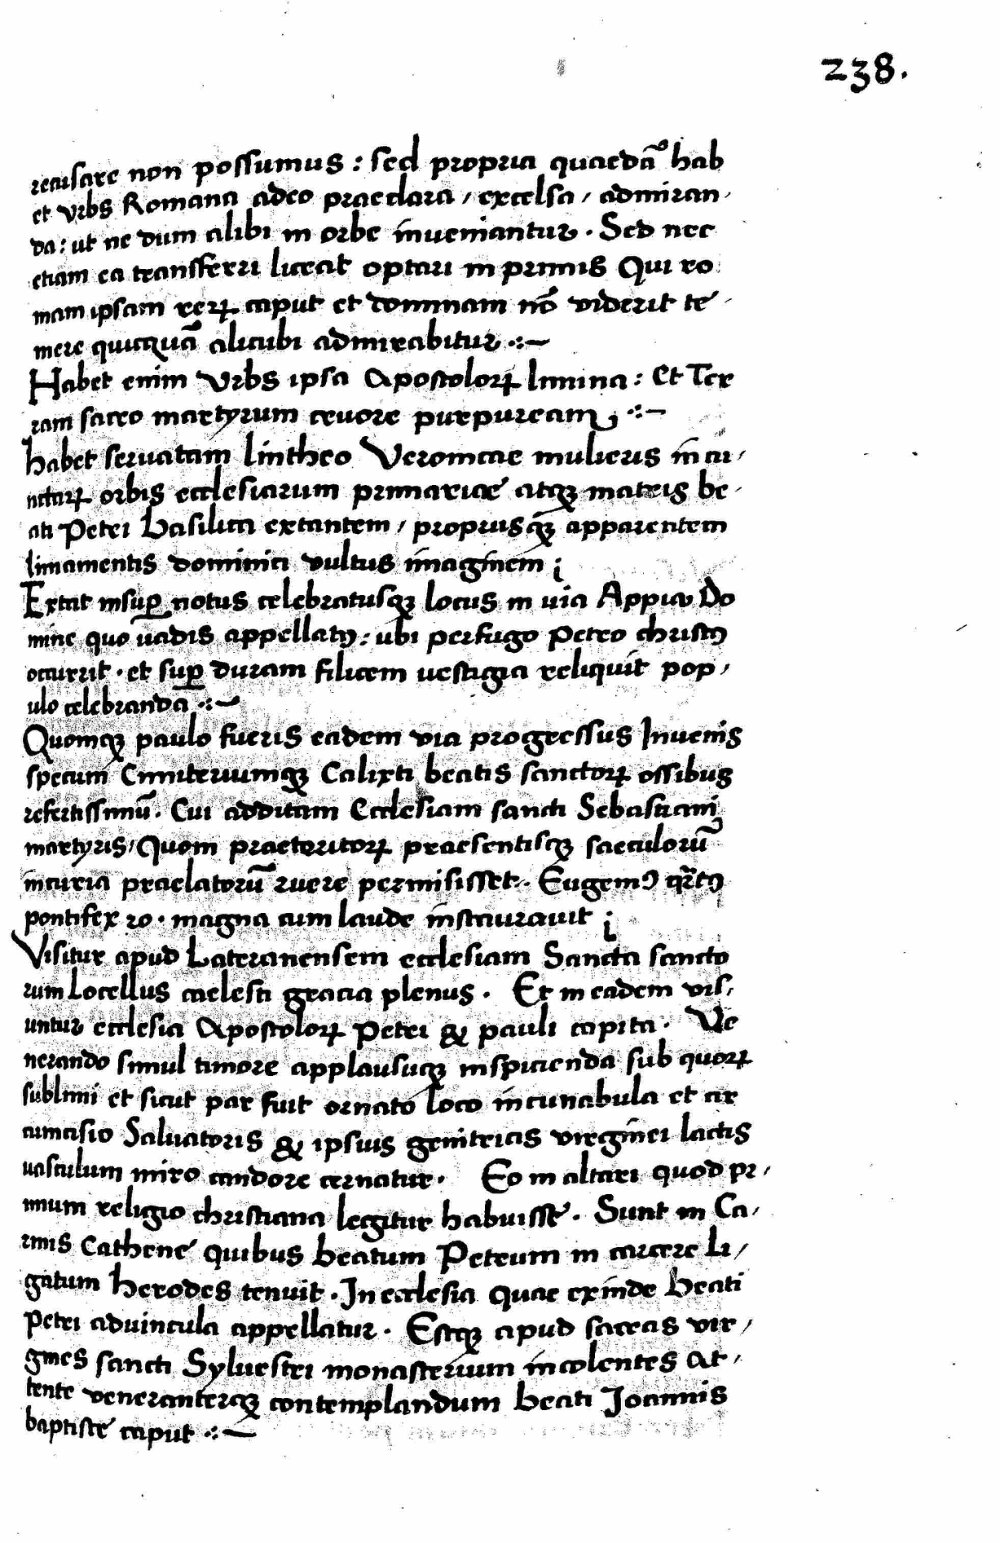 238.
recusare non possumus : sed propria quaedā hab
et vrbs Romana adeo praeclara / excelsa / admiran-
da : ut ne dum alibi in orbe inueniantur . Sed nec
etiam ea transferri liceat optari in primis Qui ro
mam ipsam reꝝ caput et dominam nō viderit te-
mere quicquā alicubi admirabitur .:~
Habet enim Vrbs ipsa Apostoloꝝ limina : Et Ter
ram sacro martyrum cruore purpuream .:~
habet seruatam lintheo Veronicae mulieris in cu/
nctaꝝ orbis ecclesiarum primariae atqꝫ matris be-
ati Petri basilica extantem / proprijsqꝫ apparentem
liniamentis dominici vultus imaginem ;
Extat insuꝑ notus celebratusqꝫ locus in uia Appia Do
mine quo vadis appellatꝰ : ubi perfugo Petro christꝰ
occurrit . et suꝑ duram silicem uestigia reliquit pop/
ulo celebranda .:~
Quomqꝫ paulo fueris eadem via progressus Inuenis
specum Cimiteriumqꝫ Calixti beatis sanctoꝝ ossibus
refertissimū . Cui additam Ecclesiam sancti Sebastiani
martyris / Quom praeteritoꝝ praesentisqꝫ saeculorū
incuria praelatorū ruere permisisset . Eugeniꝰ qꝛtꝰ
pontifex ro . magna cum laude instaurauit ;
Visitur apud Lateranensem ecclesiam Sancta sancto
rum Locellus caelesti gracia plenus . Et in eadem vis/
untur ecclesia Apostoloꝝ Petri & pauli capita . Ve
nerando simul timore applausuqꝫ inspicienda sub quoꝝ
sublimi et sicut par fuit ornato loco incunabula et cir
cumcisio Saluatoris & ipsius genitricis virginei lactis
uasculum miro candore cernatur . Eo in altari quod pr/
imum religio christiana legitur habuisse . Sunt in Ca/
rinis Cathene quibus beatum Petrum in carcere li/
gatum herodes tenuit . In ecclesia quae exinde beati
Petri aduincula appellatur . Estqꝫ apud sacras vir/
gines sancti Syluestri monasterium incolentes at/
tente veneranterqꝫ contemplandum beati Joannis
baptiste caput .:~